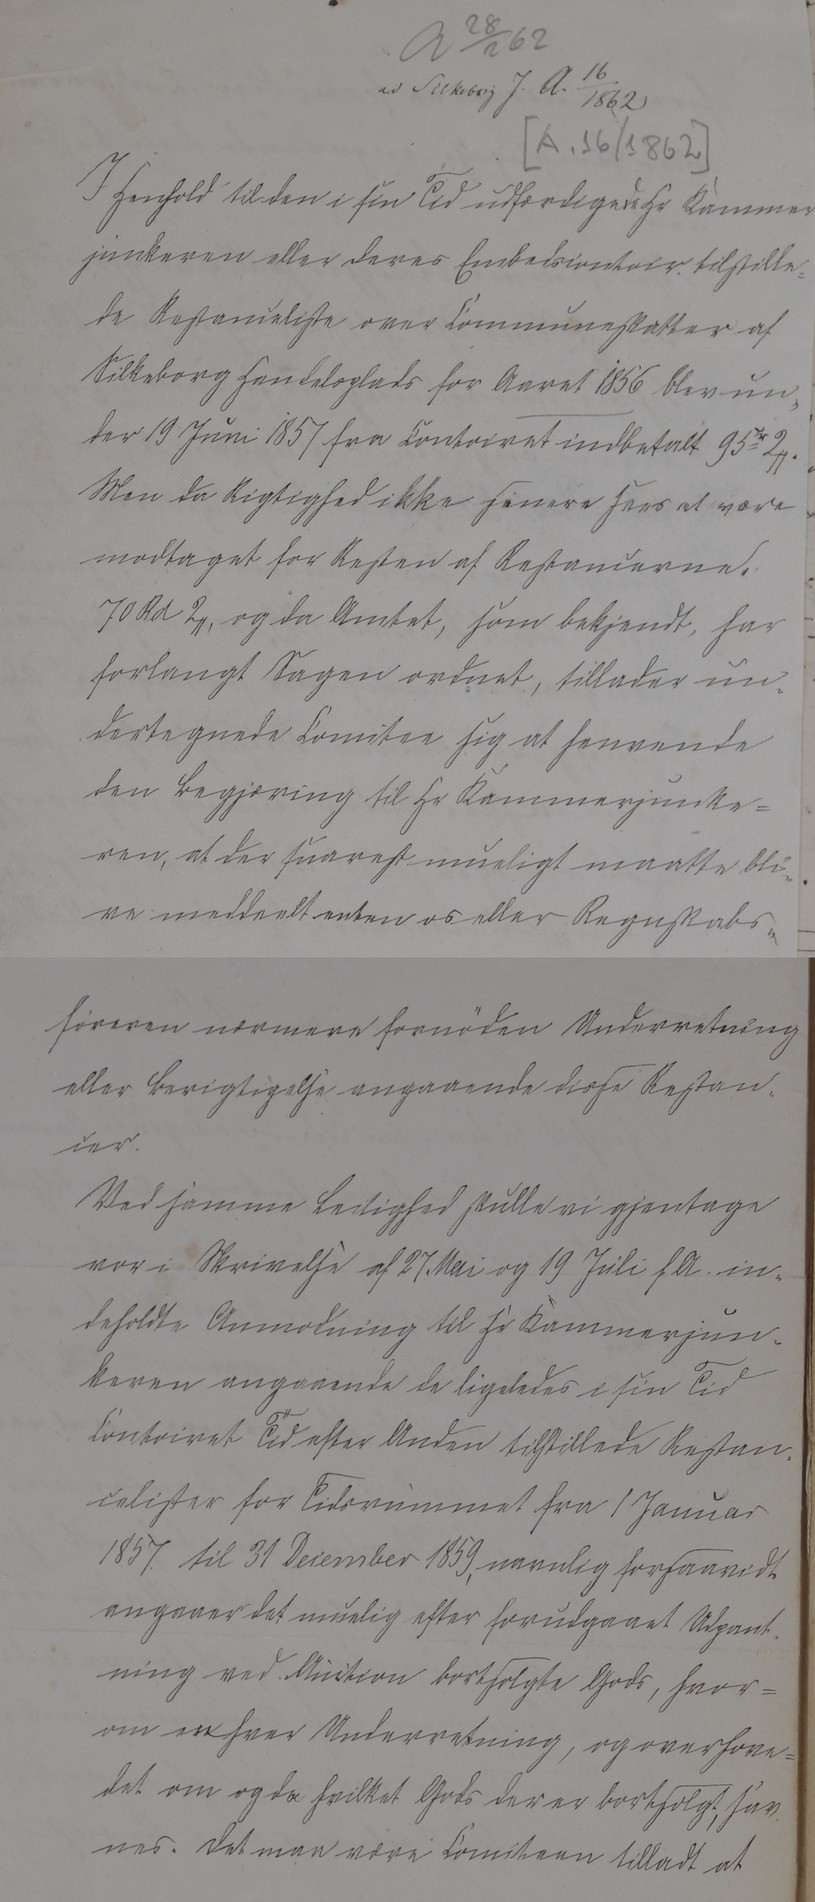 A 28/2 62
ad Silkeborg J. A. 16/1862
[A. 16/1862]
I Henhold til den i sin Tid udfærdigede Hr Kammer
junkeren eller deres Embedscontoir tilstille=
de Restanceliste over Communeskatter af
Silkeborg Handelsplads for Aaret 1856 blev un-
der 19 Juni 1857 fra Contoiret indbetalt 95 rd 2 ß.
Men da Rigtighed ikke senere sees at være
modtaget for Resten af Restancerne.
70 Rd 2 ß, og da Amtet, som bekjendt, har
forlangt Sagen ordnet, tillader un-
dertegnede Comitee sig at henvende
den Begjæring til Hr Kammerjunke=
ren, at der snarest mueligt maatte bli-
ve meddeelt enten os eller Regnskabs-
føreren nærmere fornöden Underretning
eller Berigtigelse angaaende disse Restan-
cer.
Ved samme Leilighed skulle vi gjentage
vor i Skrivelse af 27 Mai og 19 Juli f. A. in-
deholdte Anmodning til Hr Kammerjun-
keren angaaende de ligeledes i sin Tid
Contoiret Tid efter Anden tilstillede Restan-
celister for Tidsrummet fra 1 Januar
1857 til 31 December 1859, navnlig forsaavidt
angaaer det muelig efter forudgaaet Udpant-
ning ved Auction bortsolgte Gods, hvor=
om enhver Underretning, og overhove=
det om og da hvilket Gods der er bortsolgt, sav-
nes. Det maa være Comiteen tilladt at